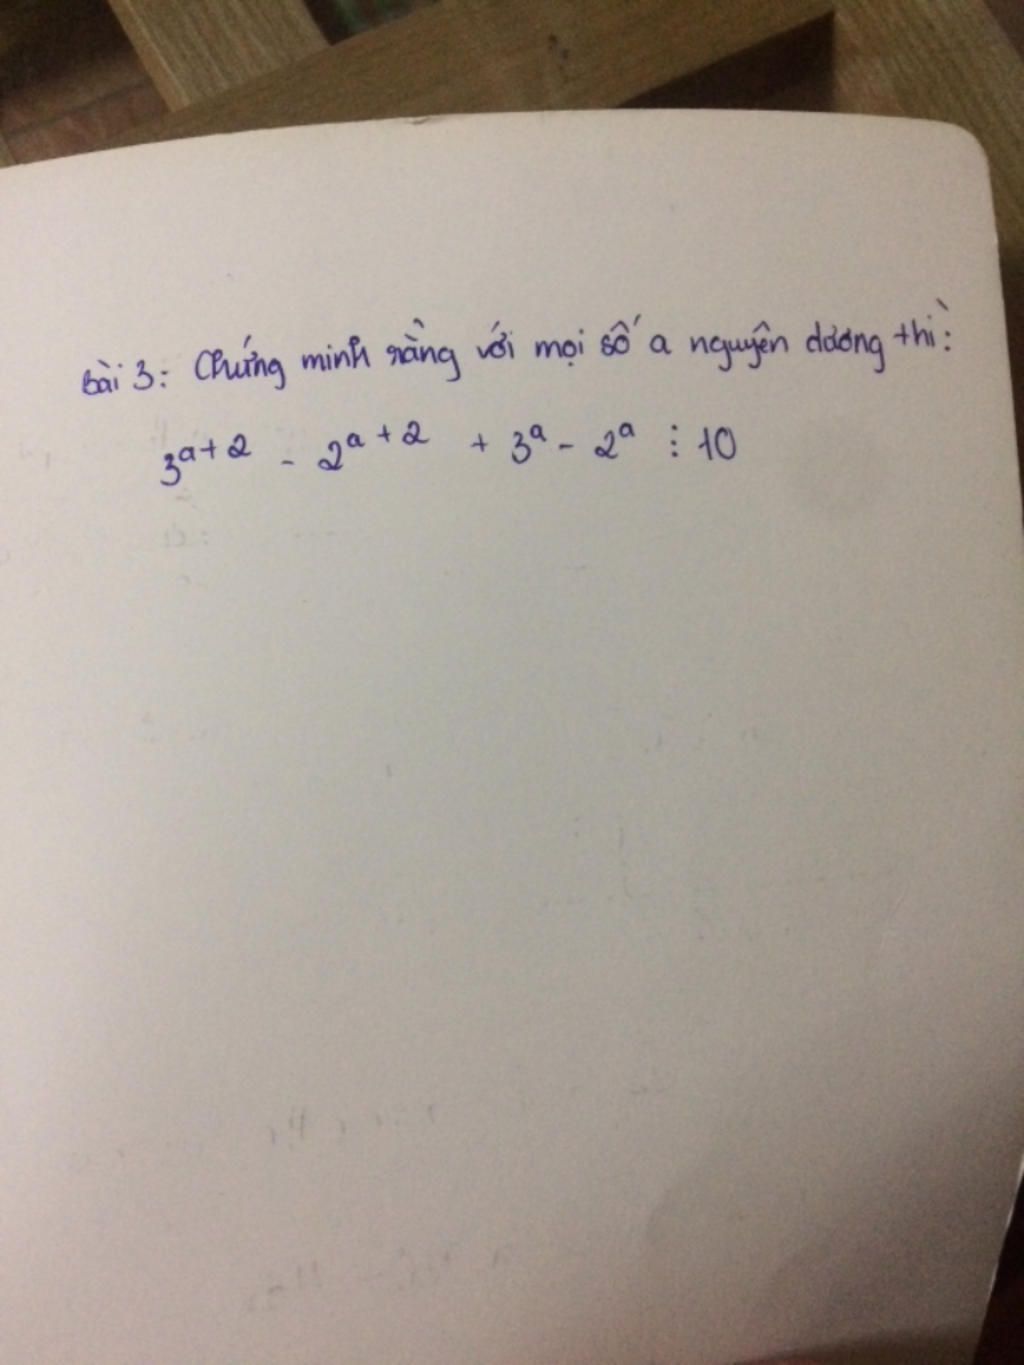 bài 3: Chứng minh rằng với mọi số a nguyên dương thì:
3^{a+2} - 2^{a+2} + 3^a - 2^a ⋮ 10